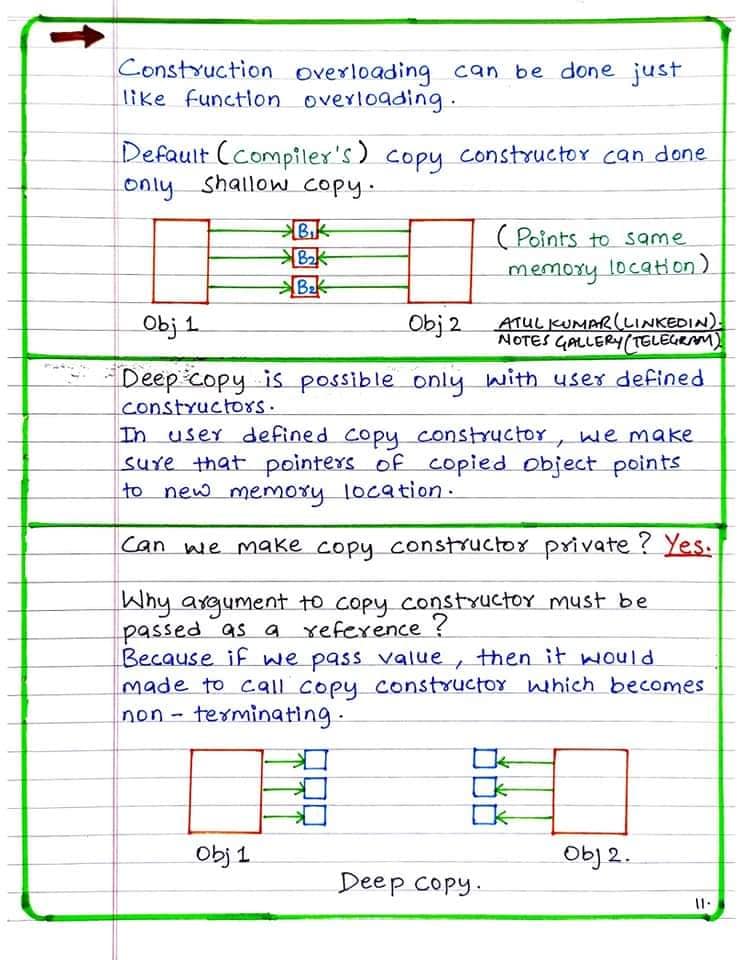 Construction overloading can be done just
like function overloading.
Default (compiler's) copy constructor can done
only shallow copy.
B1
B2
B2
(Points to same
memory location)
Obj 1
Obj 2
ATUL KUMAR (LINKEDIN).
NOTES GALLERY (TELEGRAM)
Deep copy is possible only with user defined
constructors.
In user defined copy constructor, we make
sure that pointers of copied object points
to new memory location.
Can we make copy constructor private? Yes.
Why argument to copy constructor must be
passed as a reference?
Because if we pass value, then it would
made to call copy constructor which becomes
non-terminating.
Obj 1
Obj 2.
Deep copy.
11.